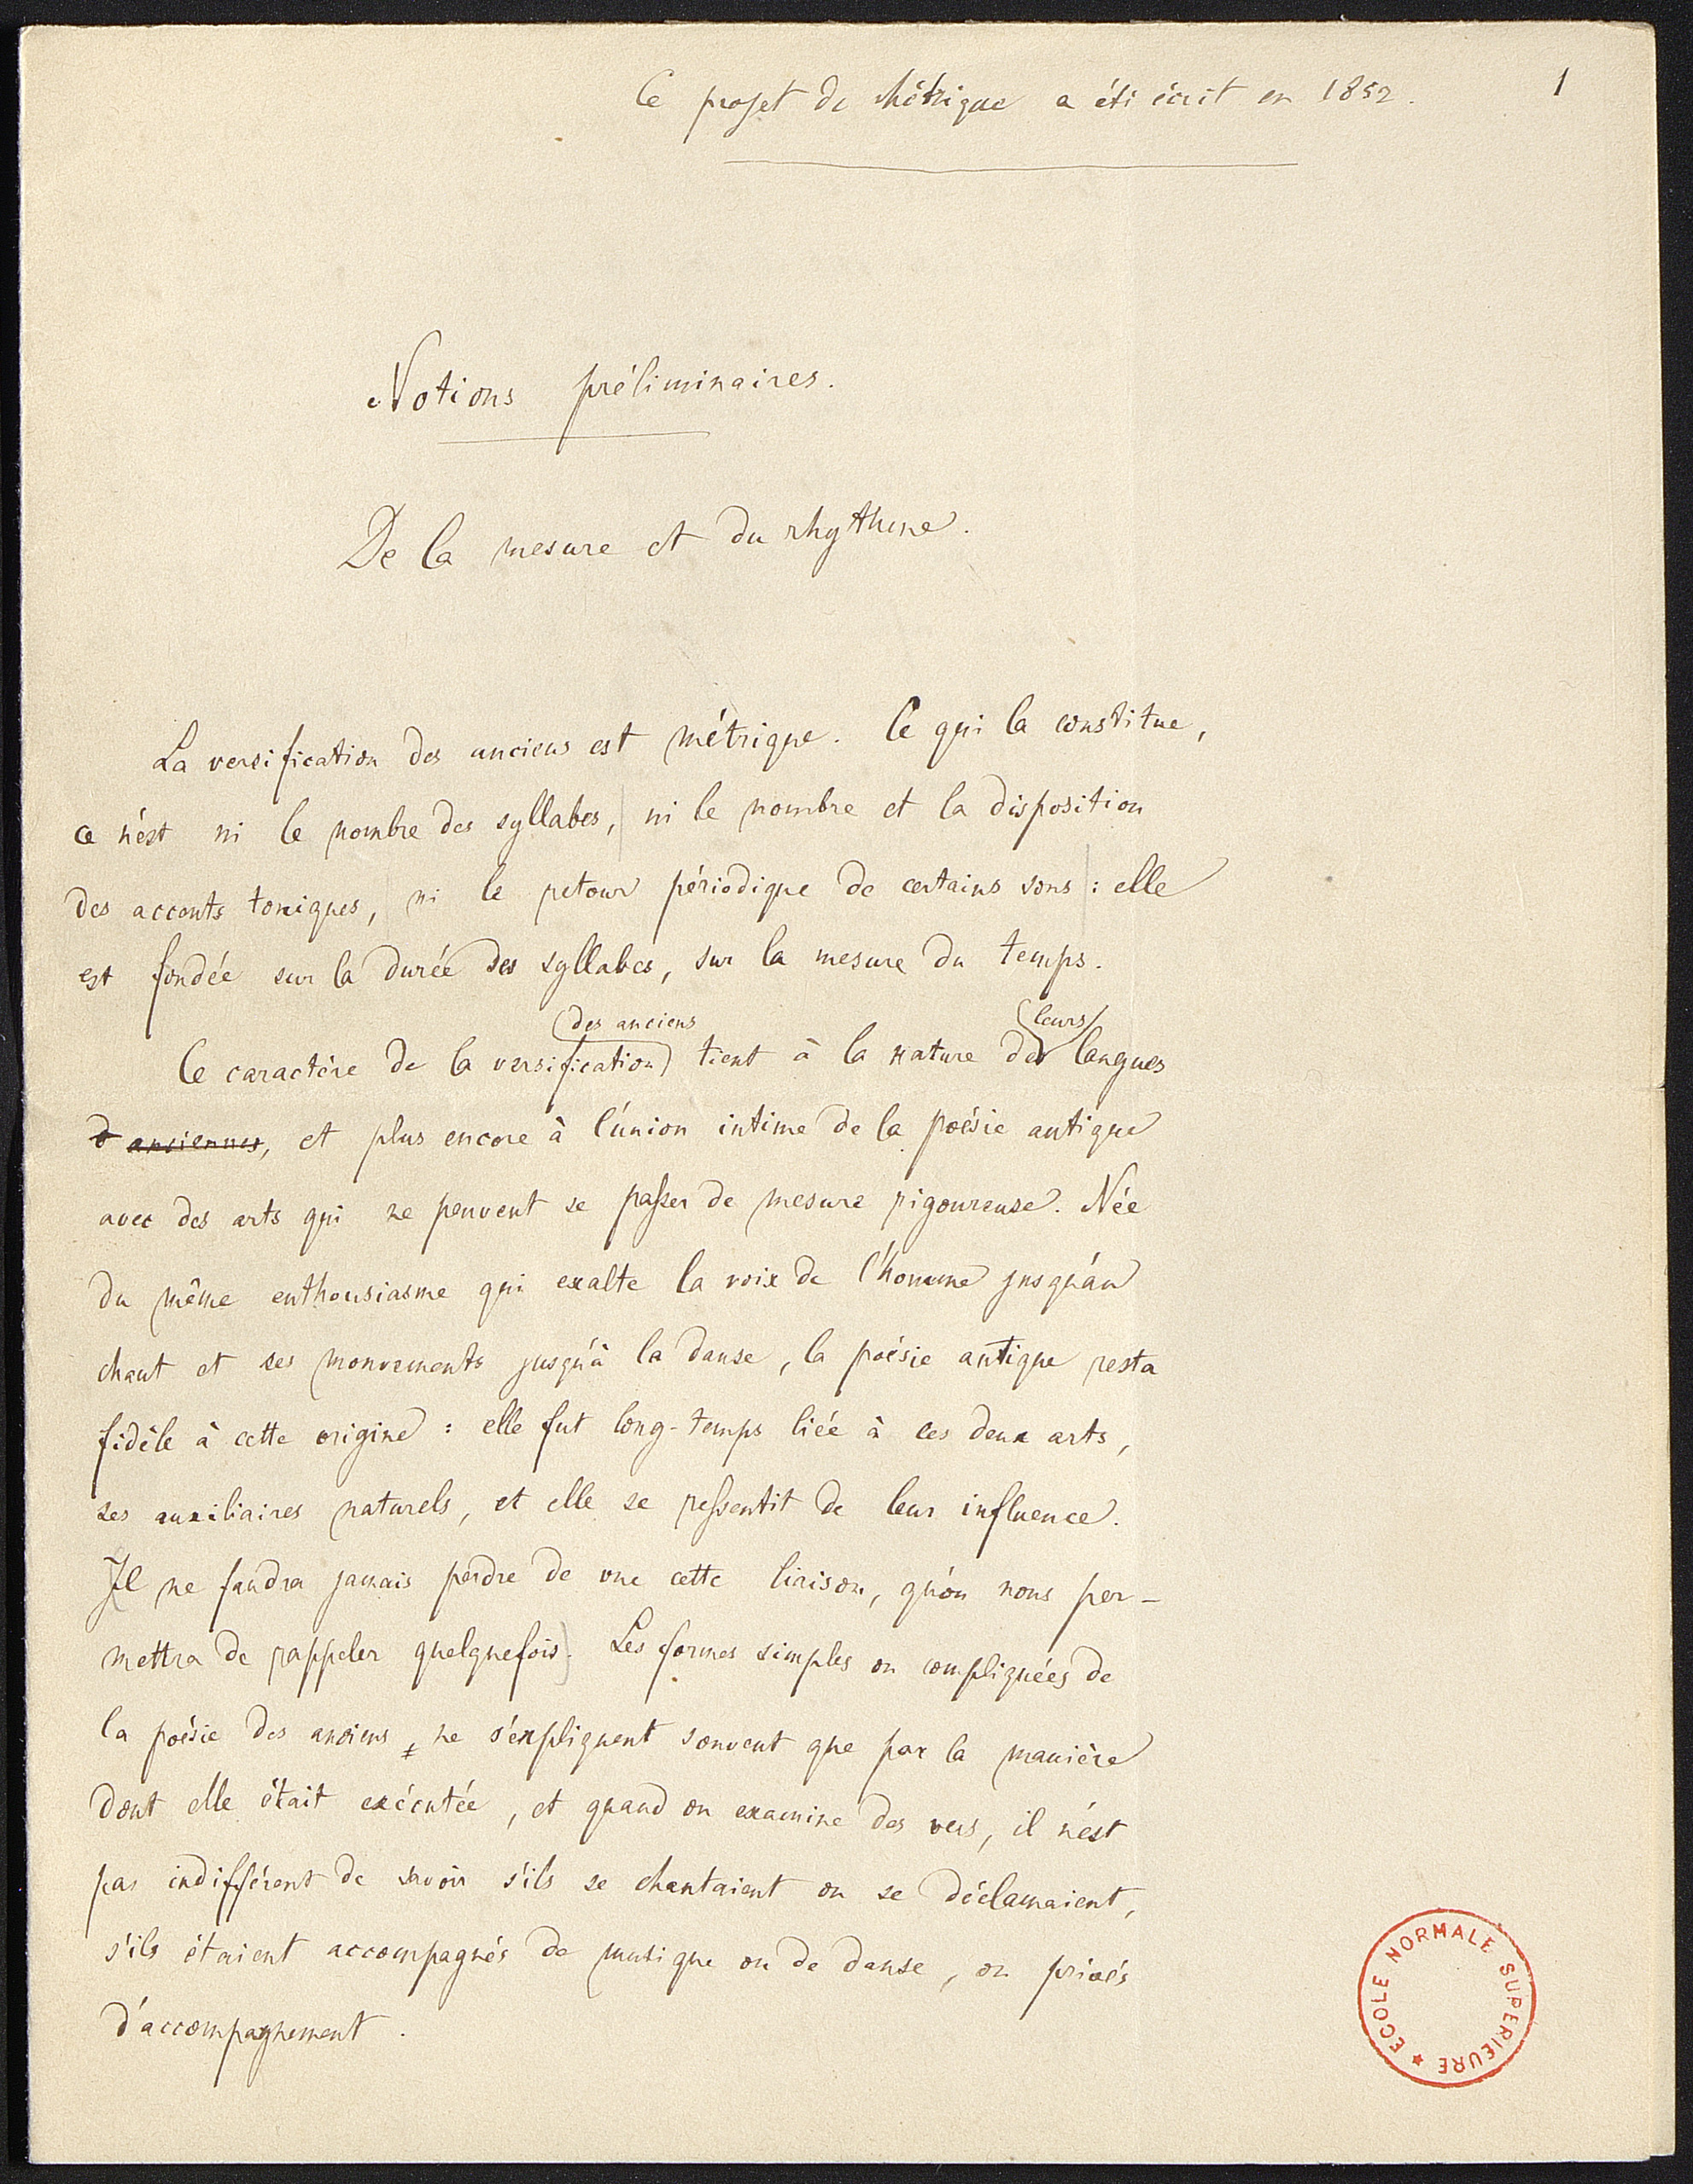 Ce projet de Métrique a été écrit en 1852.
1
Notions préliminaires.
De la mesure et du rhythme.
La versification des anciens est métrique. Ce qui la constitue,
ce n'est ni le nombre des syllabes, ni le nombre et la disposition
des accents toniques, ni le retour périodique de certains sons : elle
est fondée sur la durée des syllabes, sur la mesure du temps.
(des anciens (leurs)
Ce caractère de la versification) tient à la nature des langues
anciennes, et plus encore à l'union intime de la poésie antique
avec des arts qui ne peuvent se passer de mesure rigoureuse. Née
du même enthousiasme qui exalte la voix de l'homme jusqu'au
chant et ses mouvements jusqu'à la danse, la poésie antique resta
fidèle à cette origine : elle fut long-temps liée à ces deux arts,
ses auxiliaires naturels, et elle se ressentit de leur influence.
Il ne faudra jamais perdre de vue cette liaison, qu'on nous per-
mettra de rappeler quelquefois]. Les formes simples ou compliquées de
la poésie des anciens, ne s'expliquent souvent que par la manière
dont elle était exécutée, et quand on examine des vers, il n'est
pas indifférent de savoir s'ils se chantaient ou se déclamaient,
s'ils étaient accompagnés de musique ou de danse, ou privés
d'accompagnement.
ECOLE NORMALE SUPERIEURE